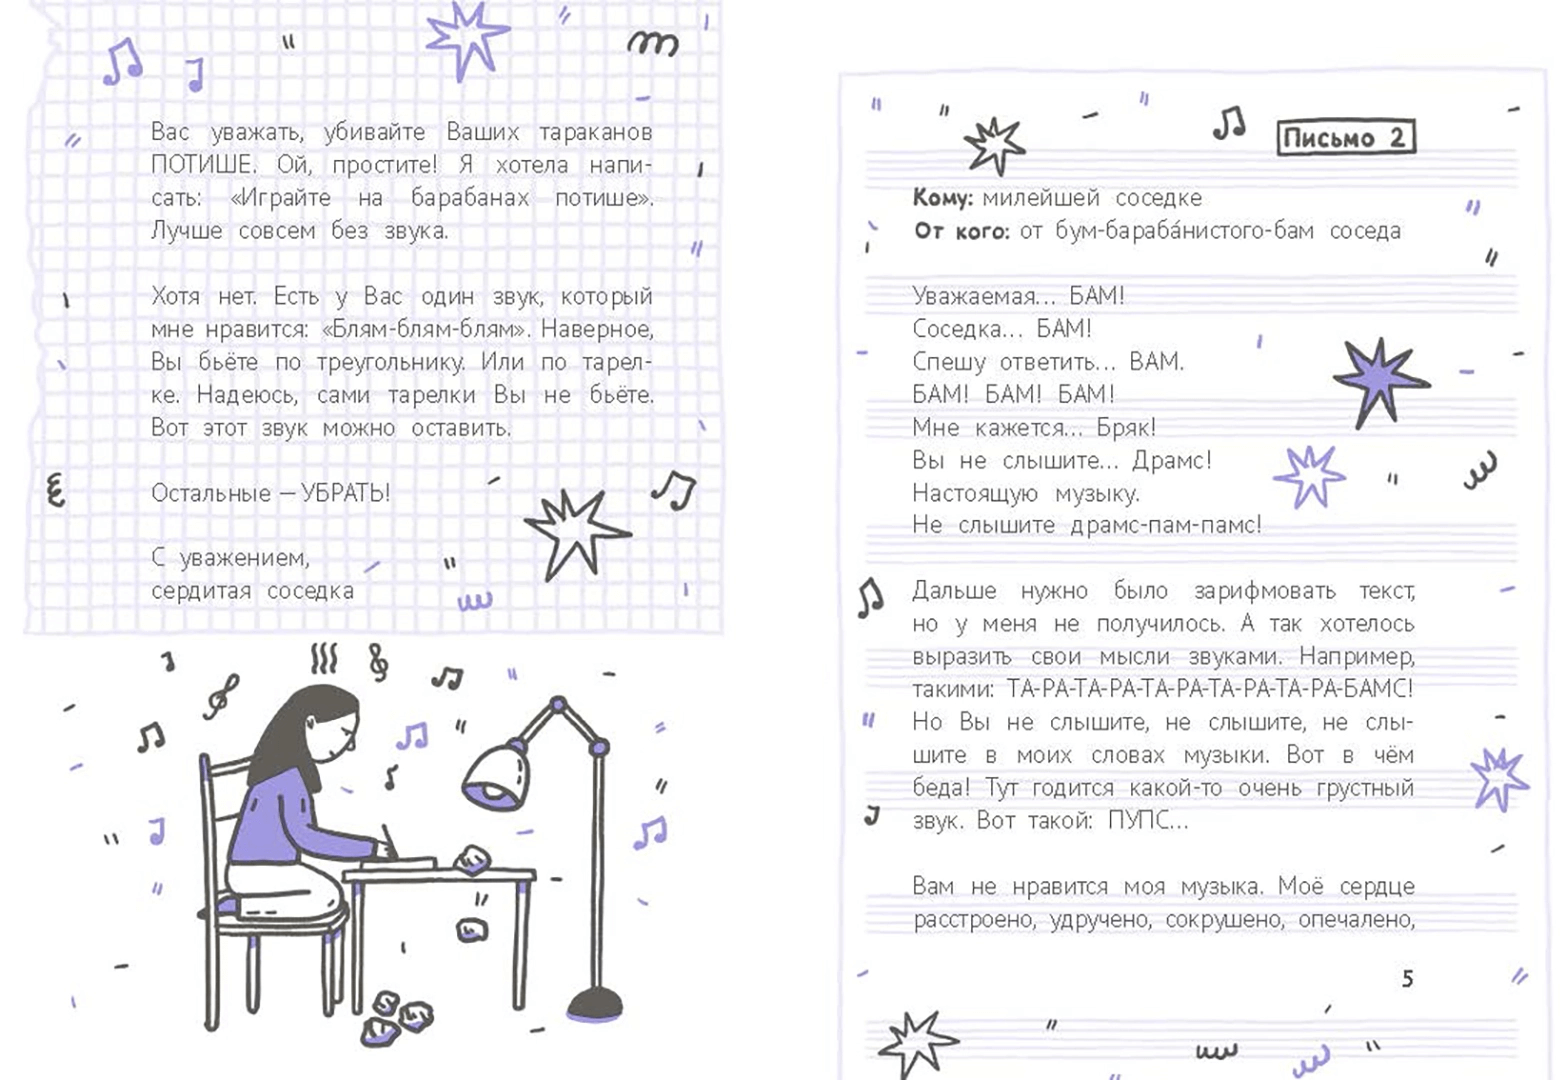 Вас уважать, убивайте Ваших тараканов
ПОТИШЕ. Ой, простите! Я хотела напи-
сать: «Играйте на барабанах потише».
Лучше совсем без звука.
Хотя нет. Есть у Вас один звук, который
мне нравится: «Блям-блям-блям». Наверное,
Вы бьёте по треугольнику. Или по тарел-
ке. Надеюсь, сами тарелки Вы не бьёте.
Вот этот звук можно оставить.
Остальные – УБРАТЬ!
С уважением,
сердитая соседка
Письмо 2
Кому: милейшей соседке
От кого: от бум-бараба́нистого-бам соседа
Уважаемая... БАМ!
Соседка... БАМ!
Спешу ответить... ВАМ.
БАМ! БАМ! БАМ!
Мне кажется... Бряк!
Вы не слышите... Драмс!
Настоящую музыку.
Не слышите драмс-пам-памс!
Дальше нужно было зарифмовать текст,
но у меня не получилось. А так хотелось
выразить свои мысли звуками. Например,
такими: ТА-РА-ТА-РА-ТА-РА-ТА-РА-ТА-РА-БАМС!
Но Вы не слышите, не слышите, не слы-
шите в моих словах музыки. Вот в чём
беда! Тут годится какой-то очень грустный
звук. Вот такой: ПУПС...
Вам не нравится моя музыка. Моё сердце
расстроено, удручено, сокрушено, опечалено,
5